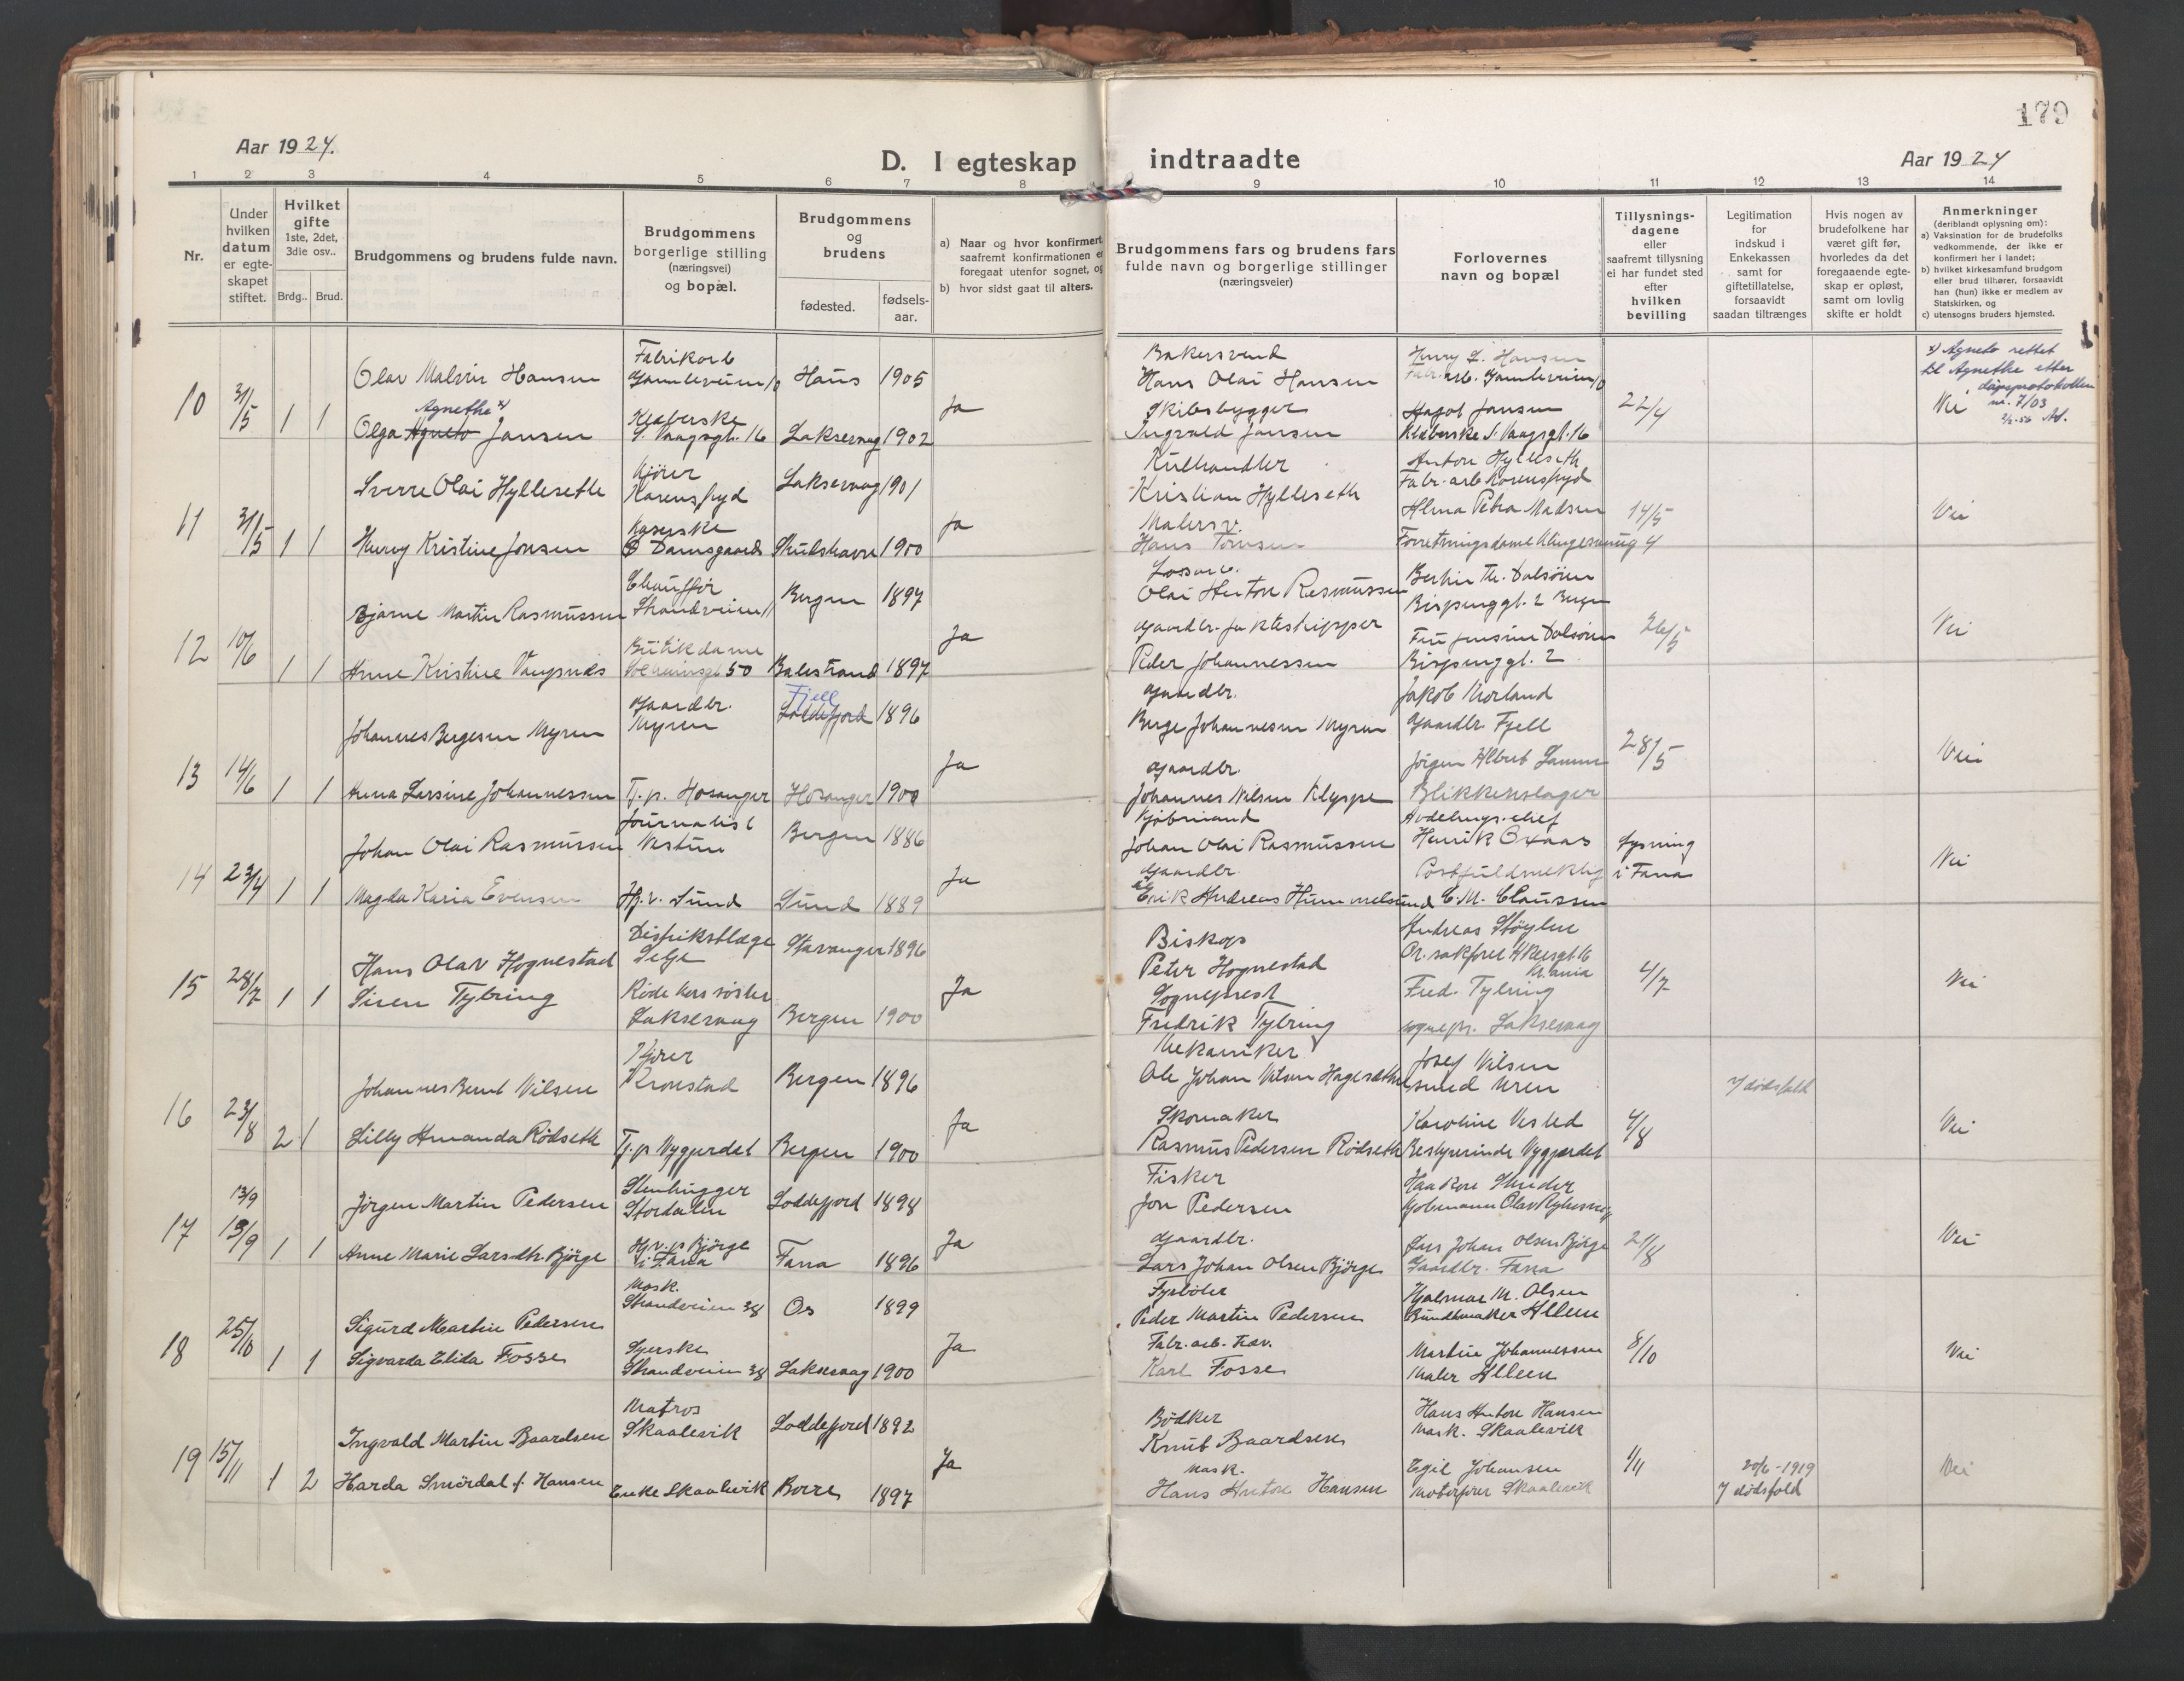 179
Aar 1924.
D. I egteskap indtraadte
Aar 1924
1 2 3 4 5 6 7 8 9 10 11 12 13 14
Nr.
Under hvilken datum er egteskapet stiftet.
Hvilket gifte 1ste, 2det, 3die osv..
Brdg.. Brud.
Brudgommens og brudens fulde navn.
Brudgommens borgerlige stilling (næringsvei) og bopæl.
Brudgommens og brudens
fødested. fødsels-aar.
a) Naar og hvor konfirmert, saafremt konfirmationen er foregaat utenfor sognet, og
b) hvor sidst gaat til alters.
Brudgommens fars og brudens fars fulde navn og borgerlige stillinger (næringsveier)
Forlovernes navn og bopæl
Tillysnings-dagene eller saafremt tillysning ei har fundet sted efter hvilken bevilling
Legitimation for indskud i Enkekassen samt for giftetillatelse, forsaavidt saadan tiltrænges
Hvis nogen av brudefolkene har været gift før, hvorledes da det foregaaende egteskap er opløst, samt om lovlig skifte er holdt
Anmerkninger (deriblandt oplysning om):
a) Vaksination for de brudefolks vedkommende, der ikke er konfirmert her i landet;
b) hvilket kirkesamfund brudgom eller brud tilhører, forsaavidt han (hun) ikke er medlem av Statskirken, og
c) utensogns bruders hjemsted.
10 31/5 1 1
Olav Malvin Hansen Fabrikarb Haus 1905
Bakersvend
Hans Olai Hansen
Henry L. Hansen
Agnethe x)
Olga Agneto Jansen S. Vaagsgt. 16 Laksevaag 1902 Ja
Skibsbygger
Ingvald Jansen
Jansen
S. Vaagsgt. 16
22/4 Nei
x) Agneto rettet til Agnethe etter dåpsprotokollen nr. 7/03
11 31/5 1 1
Sverre Olai Hylleseth Kjører Laksevaag 1901
Kulhandler
Kristian Hylleseth
Anton Hylleseth
Fabr. arb.
Kristine Jonsen Damsgaard 1900 Ja
Malersv.
Hans
Alma Petra Madsen
Forretningsdame
14/5 Nei
12 10/6 1 1
Bjarne Martin Rasmussen Chauffør Strandveien 11 Bergen 1897
Olai Anton Rasmussen
Berthin Th. Dalsören
2 Bergen
Anne Kristine Vangsnes Butikdame 50 Balestrand 1897 Ja
Gaardbr. Jakteskipper
Peder Johannessen
Fru Jensine Dalsören
gt. 2
26/5 Nei
13 14/6 1 1
Johannes Bergesen Myren Gaardbr. Myren Loddefjord Fjell 1896
Gaardbr.
Berge Johannesen Myren
Jakob Morland
Gaardbr. Fjell
Anna Larsine Johannessen Tj. p. Hosanger Hosanger 1900 Ja
Gaardbr.
Johannes Nilsen Klyppe
Jörgen Albert
Blikkenslager
28/5 Nei
14 23/4 1 1
Johan Olai Rasmussen Journalist Nestun Bergen 1886
Kjöbmand
Johan Olai Rasmussen
Avdelings-chef
Henrik Oxaas
Lysning i Fana
Magda Karia Evensen Hj. v. Sund Sund 1889 Ja
Gaardbr.
Erik Andreas Hummelsund
Postfuldmektig
C. M. Claussen
Nei
15 28/7 1 1
Hans Olav Hognestad Distriktslæge Selje Stavanger 1896
Biskop
Peter Hognestad
Andreas Stöylen
Or. sakfører Akersgt. 16
Kr.ania
Siren Tybring Røde Kors søster Laksevaag Bergen 1900 Ja
Sogneprest
Fredrik Tybring
Fred. Tybring
sognepr. Laksevaag
4/7 Nei
16 23/8 2 1
Johannes Bernt Nilsen Kjører Kronstad Bergen 1896
Mekaniker
Ole Johan Nilsen
Josef Nilsen
smed Uren
V dödsfald
Lilly Amanda Rödseth Tj. p Nygjerdet Bergen 1900 Ja
Skomaker
Rasmus Pedersen Rödseth
Karoline Vested
Bestyrerinde Nygjerdet
4/8 Nei
17 13/9 13/9 1 1
Jörgen Martin Pedersen Stenhugger Stordalen Loddefjord 1898
Fisker
Jon Pedersen
Haakon
Anne Marie Larsdtr. Björge Hj. v. p Björge i Fana Fana 1896 Ja
Gaardbr.
Lars Johan Olsen Björge
Lars Johan Olsen Björge
Gaardbr. Fana
21/8 Nei
18 25/10 1 1
Sigurd Martin Pedersen Mask. Strandveien 38 Os 1899
Fyrböter
Peder Martin Pedersen
Hjalmar M. Olsen
Bundtmaker Alleen
Sigvarda Elida Fosse Syerske Strandveien 38 Laksevaag 1900 Ja
Fabr. arb.
Karl Fosse
Martin Johannessen
Maler Alleen
8/10 Nei
19 15/11 1 2
Ingvald Martin Baardsen Matros Skaalevik Loddefjord 1892
Bödker
Knut Baardsen
Hans Anton Hansen
Mask. Skaalevik
Harda Smördal f. Hansen Enke Skaalevik Borre 1897 Ja
Mask.
Hans Anton Hansen
Egil Johansen
Motorfører Skaalevik
1/11 20/6-1919
V dödsfald
Nei